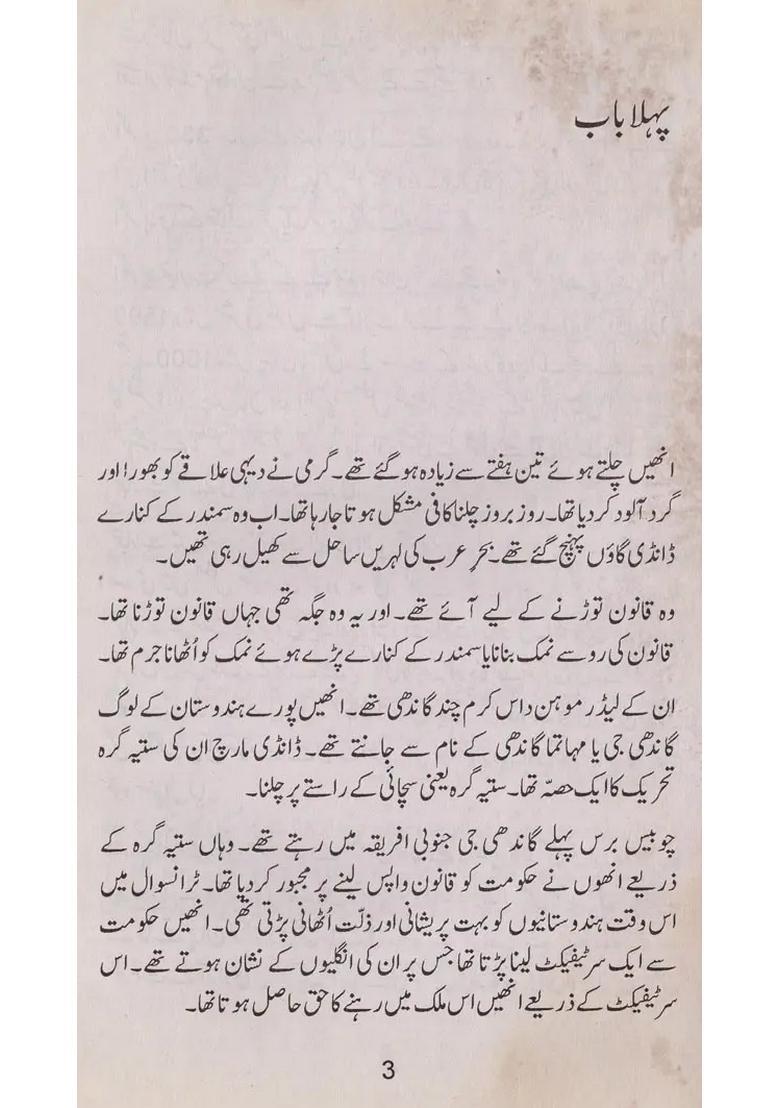 پہلا باب
انھیں چلتے ہوئے تین ہفتے سے زیادہ ہو گئے تھے۔ گرمی نے دیہی علاقے کو بھورا اور
گرد آلود کر دیا تھا۔ روز بروز چلنا کافی مشکل ہوتا جا رہا تھا۔ اب وہ سمندر کے کنارے
ڈانڈی گاؤں پہنچ گئے تھے۔ بحرِ عرب کی لہریں ساحل سے کھیل رہی تھیں۔
وہ قانون توڑنے کے لیے آئے تھے۔ اور یہ وہ جگہ تھی جہاں قانون توڑنا تھا۔
قانون کی رو سے نمک بنانا یا سمندر کے کنارے پڑے ہوئے نمک کو اُٹھانا جرم تھا۔
ان کے لیڈر موہن داس کرم چند گاندھی تھے۔ انھیں پورے ہندوستان کے لوگ
گاندھی جی یا مہاتما گاندھی کے نام سے جانتے تھے۔ ڈانڈی مارچ ان کی ستیہ گرہ
تحریک کا ایک حصّہ تھا۔ ستیہ گرہ یعنی سچائی کے راستے پر چلنا۔
چوبیس برس پہلے گاندھی جی جنوبی افریقہ میں رہتے تھے۔ وہاں ستیہ گرہ کے
ذریعے انھوں نے حکومت کو قانون واپس لینے پر مجبور کر دیا تھا۔ ٹرانسوال میں
اس وقت ہندوستانیوں کو بہت پریشانی اور ذلّت اُٹھانی پڑتی تھی۔ انھیں حکومت
سے ایک سرٹیفیکٹ لینا پڑتا تھا جس پر ان کی انگلیوں کے نشان ہوتے تھے۔ اس
سرٹیفیکٹ کے ذریعے انھیں اس ملک میں رہنے کا حق حاصل ہوتا تھا۔
3